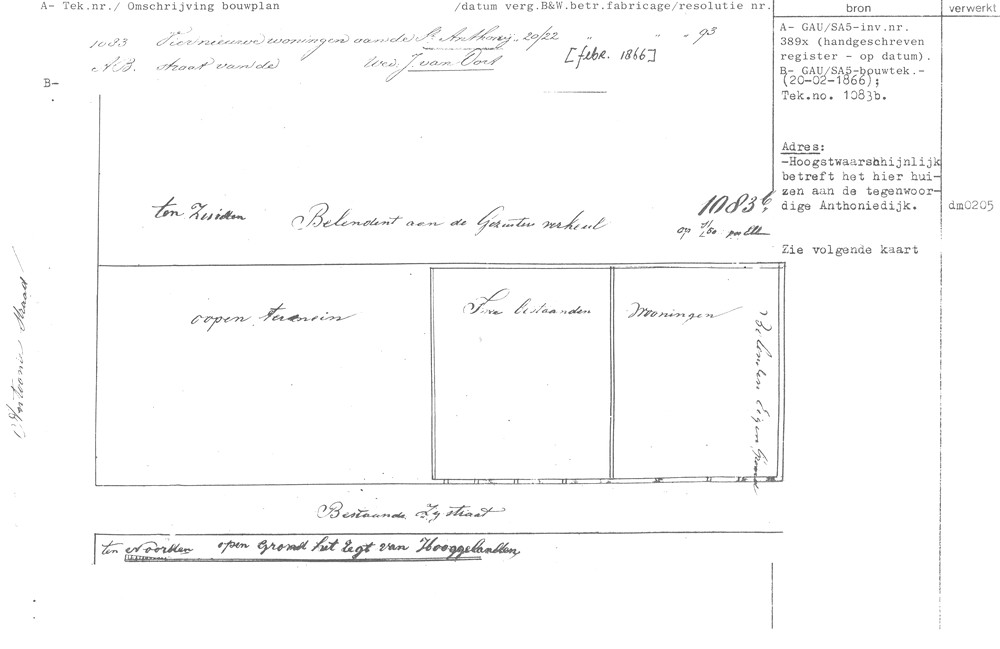 A- Tek.nr./ Omschrijving bouwplan /datum verg.B&W.betr.fabricage/resolutie nr.
bron
verwerkt
1083 Vier nieuwe woningen aan de St. Anthony.. 20/22 " " " 93
N.B. straat van de Wed. J. van Oort [febr. 1866]
B-
A- GAU/SA5-inv.nr.
389x (handgeschreven
register - op datum).
B- GAU/SA5-bouwtek.-
(20-02-1866);
Tek.no. 1083b.
Adres:
-Hoogstwaarshhijnlijk
betreft het hier hui-
zen aan de tegenwoor-
dige Anthoniedijk.
dm0205
Zie volgende kaart
ten Zuiden Belendent aan de verkeul
1083b,
op 1/50 per Ell
Antoonie Straad
oopen terrein
Twe bestaanden Wooningen
Belenden Eigen Grond
Bestaande Zystraat
ten Noorden open Grond het Legt van Hooggelanden